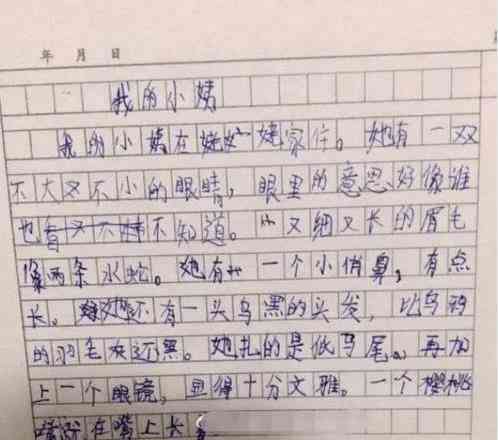 年 月 日
我的小姨
我的小姨在姥姥家住。她有一双
不大又不小的眼睛，眼里的意思好像谁
也不知道。又细又长的眉毛
像两条水蛇。她有一个小俏鼻，有点
长。她还有一头乌黑的头发，比乌鸦
的羽毛灰还黑。她扎的是低马尾。再加
上一个眼镜，显得十分文雅。一个樱桃
嘴还在嘴上长